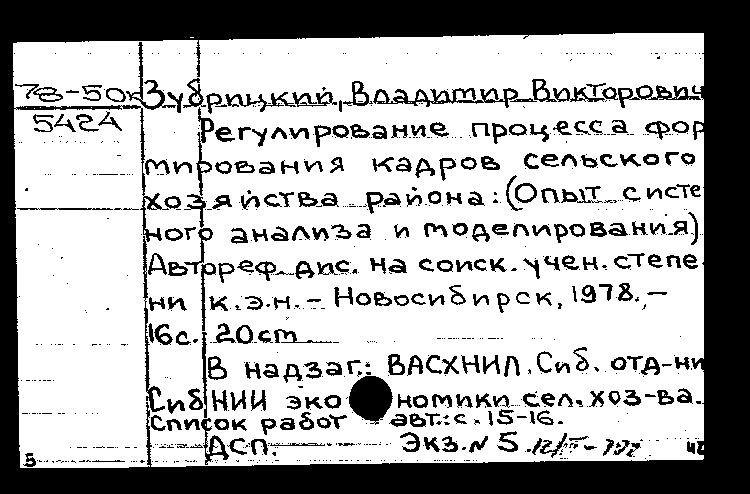 78-50к Зубрицкий, Владимир Викторович
5424 Регулирование процесса фор
мирования кадров сельского
хозяйства района: (Опыт систе
ного анализа и моделирования)
Автореф. дис. на соиск. учен. степе
ни к.э.н. – Новосибирск, 1978. –
16с. 20cm
В надзаг.: ВАСХНИЛ. Сиб. отд-ни
СибНИИ экономики сел. хоз-ва.
Список работ авт.: с. 15-16.
ДСП. Экз. N 5
5